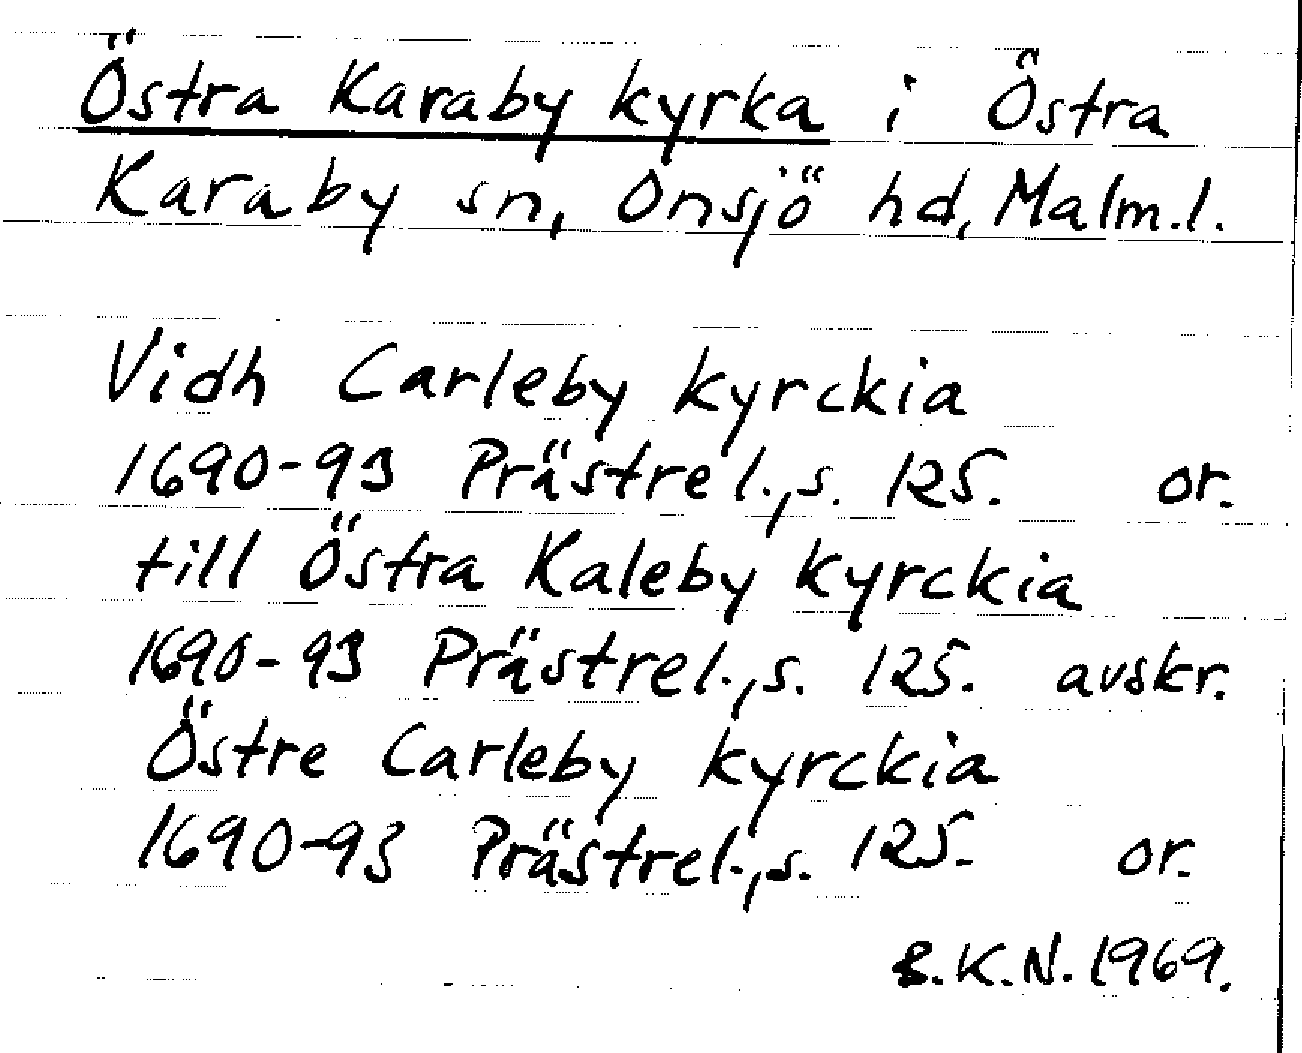 Östra Karaby kyrka i Östra
Karaby sn, Onsjö hd, Malm.l.
Vidh Carleby kyrckia
1690-93 Prästrel., s. 125. or.
till Östra Kaleby kyrckia
1690-93 Prästrel., s. 125. avskr.
Östre Carleby kyrckia
1690-93 Prästrel., s. 125. or.
B.K.N. 1969.